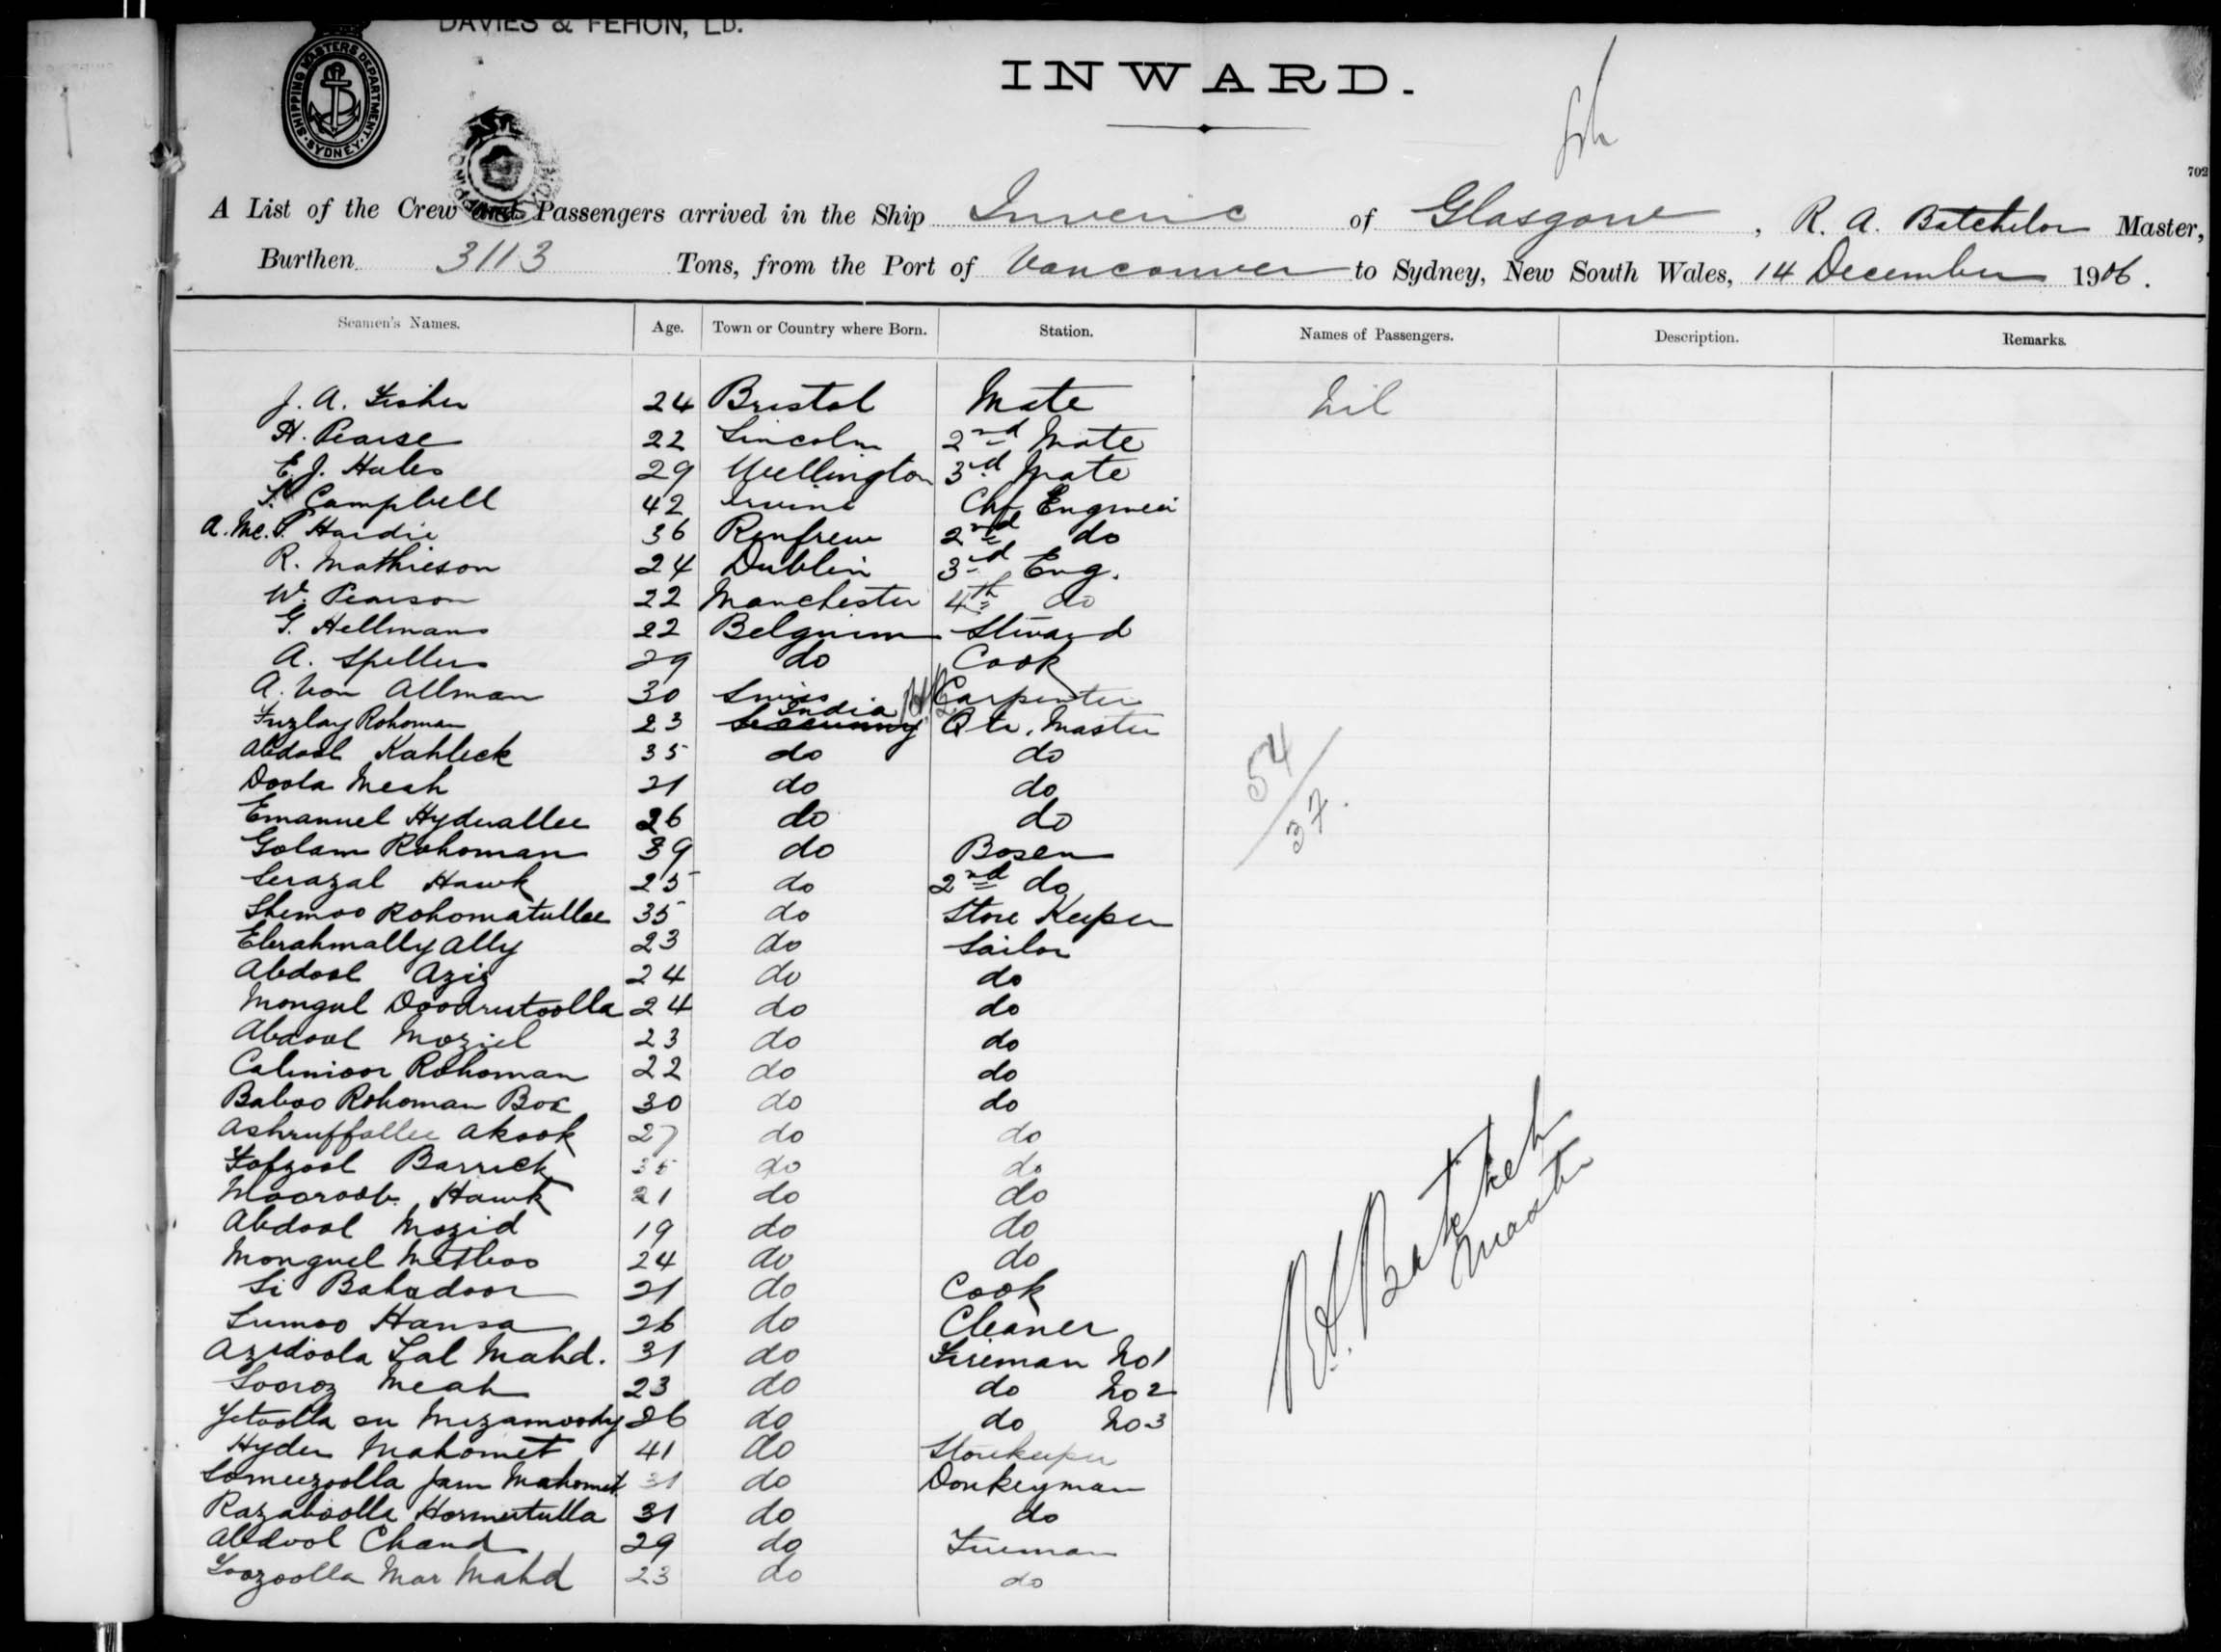 DAVIES & FEHON, LD.
SHIPPING MASTERS DEPARTMENT
SYDNEY
INWARD.
702
A List of the Crew and Passengers arrived in the Ship Inveric of Glasgow, R. A. Batchelor Master,
Burthen 3113 Tons, from the Port of Vancouver to Sydney, New South Wales, 14 December 1906.
Seamen's Names. Age. Town or Country where Born. Station. Names of Passengers. Description. Remarks.
J. A. Fisher 24 Bristol Mate Nil
H. Pearse 22 Lincoln 2nd Mate
E. J. Hales 29 Wellington 3rd Mate
Campbell 42 Irvine Chf Engineer
A. Mc. P. Hardie 36 Renfrew 2nd do
R. Mathieson 24 Dublin 3rd Eng.
W. Pearson 22 Manchester 4th do
G. Hellmans 22 Belgium Steward
A. Spellers 29 do Cook
A. Von Allman 30 Swiss Carpenter
Fuzlay Rohoman 23 India Qtr. Master
Abdool Kahleck 35 do do
Doola Meah 21 do do
54/37.
Emanuel Hyderallee 26 do do
Golam Rohoman 39 do Bosen
Serazal Hawk 25 do 2nd do
Shemoo Rohomatullee 35 do Store Keeper
Ebrahmally Ally 23 do Sailor
Abdool Aziz 24 do do
Mongul Doodrutoolla 24 do do
Abdool Moziel 23 do do
Calimoor Rohoman 22 do do
Baboo Rohoman Box 30 do do
Ashruffallee Akook 27 do do
Fofzool Barrick 35 do do
Mooroob Hawk 21 do do
Abdool Mozid 19 do do
Monguel Metboo 24 do do
Si Bahadoor 21 do Cook
Sumoo Hansa 26 do Cleaner
Azidoola Lal Mahd. 31 do Fireman No 1
R.A. Batchelor
Master
Sooroz Meah 23 do do No 2
Jetoolla su Mezamoody 26 do do No 3
Hyder Mahomet 41 do Storekeeper
Someezoolla Jam Mahomet 31 do Donkeyman
Razaboolla Hormutulla 31 do do
Abdool Chand 29 do Fireman
Foozoolla Mar Mahd 23 do do